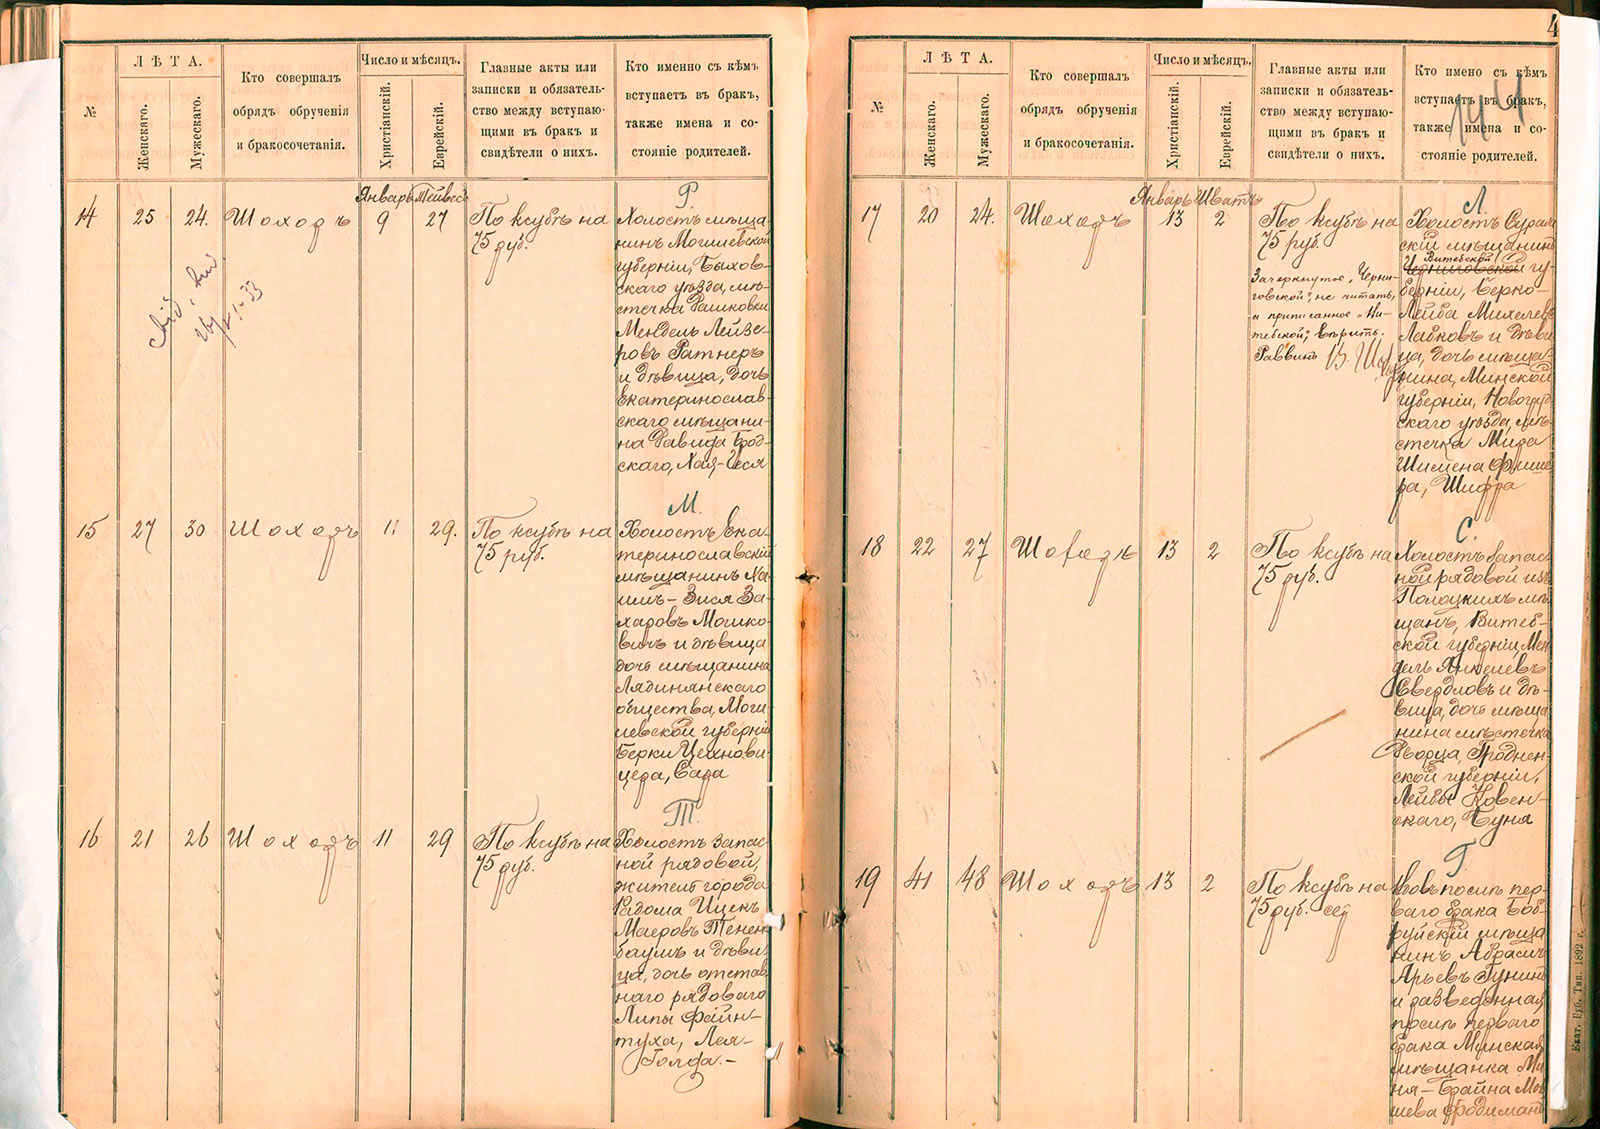 №
ЛѢТА.
Женскаго.
Мужескаго.
Кто совершалъ
обрядъ обрученія
и бракосочетанія.
Число и мѣсяцъ.
Христіанскій.
Еврейскій.
Главные акты или
записки и обязатель-
ство между вступаю-
щими въ бракъ и
свидѣтели о нихъ.
Кто именно съ кѣмъ
вступаетъ въ бракъ,
также имена и со-
стояніе родителей.
Январь Тейвесъ
Р.
14 25 24. Шоходъ 9 27 По ксубѣ на
75 руб.
Холостъ мѣща-
нинъ Могилевской
губерніи, Быхов-
скаго уѣзда, мѣ-
стечка Рашковки
Мендель Лейзе-
ровъ Ратнеръ
и дѣвица, дочь
Екатеринослав-
скаго мѣщани-
на Давида Брод-
скаго, Хая-Чеся
М.
15 27 30 Шоходъ 11 29. По ксубѣ на
75 руб.
Холостъ Ека-
теринославскій
мѣщанинъ Ха-
имъ-Зися За-
харовъ Мошко-
вичъ и дѣвица
дочь мѣщанина
Лядинянскаго
общества, Моги-
левской губерніи
Берки Цехнови-
цера, Сара
Т.
16 21 26 Шоходъ 11 29 По ксубѣ на
75 руб.
Холостъ запас-
ной рядовой,
житель города
Радома Ицекъ
Маеровъ Тенен-
баумъ и дѣви-
ца, дочь отстав-
наго рядоваго
Липы Файн-
туха, Лея-
Голда.-
4
144
№
ЛѢТА.
Женскаго.
Мужескаго.
Кто совершалъ
обрядъ обрученія
и бракосочетанія.
Число и мѣсяцъ.
Христіанскій.
Еврейскій.
Главные акты или
записки и обязатель-
ство между вступаю-
щими въ бракъ и
свидѣтели о нихъ.
Кто имено съ кѣмъ
вступаетъ въ бракъ,
также имена и со-
стояніе родителей.
Январь Шватъ
Л.
17 20 24. Шоходъ 13 2 По ксубѣ на
75 руб.
Зачеркнутое „Черни-
говской", не читать,
а приписанное „Ви-
тебской", вѣрить.
Раввинъ
Холостъ Сураж-
скій мѣщанинъ
Витебской
Черниговской гу-
берніи, Берко-
Лейба Михелевъ
Лабковъ и дѣви-
ца, дочь мѣща-
нина, Минской
губерніи, Новогруд-
скаго уѣзда, мѣ-
стечка Мира
Шимена Фише-
ра, Шифра
С.
18 22 27 Шоходъ 13 2 По ксубѣ на
75 руб.
Холостъ запас-
ной рядовой изъ
Полоцкихъ мѣ-
щанъ, Витеб-
ской губерніи, Мен-
дель Янкелевъ
Свердловъ и дѣ-
вица, дочь мѣща-
нина мѣстечка
Дворца, Гроднен-
ской губерніи,
Лейбы Ковен-
скаго, Буня
Г.
19 41 48 Шоходъ 13 2 По ксубѣ на
75 руб. сер
Вдовъ послѣ пер-
ваго брака Боб-
руйскій мѣща-
нинъ Абрамъ
Арьевъ Гунинъ
и разведенная
послѣ перваго
брака Минская
мѣщанка Ма-
ня-Брайна Мов-
шева Фродиманъ
Екат. Губ. Тип. 1892 г.